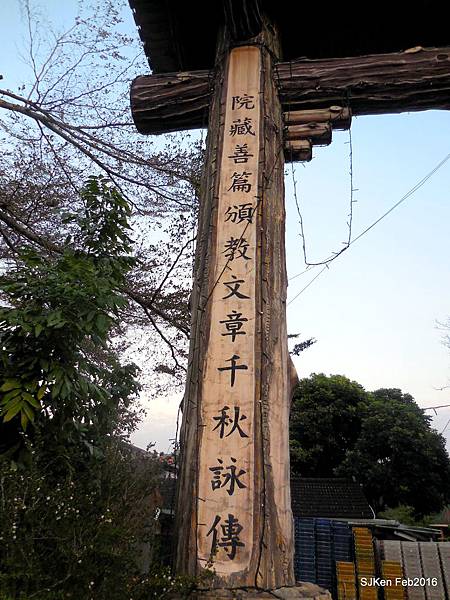 院藏善篇頒教文章千秋詠傳
SJKen Feb2016